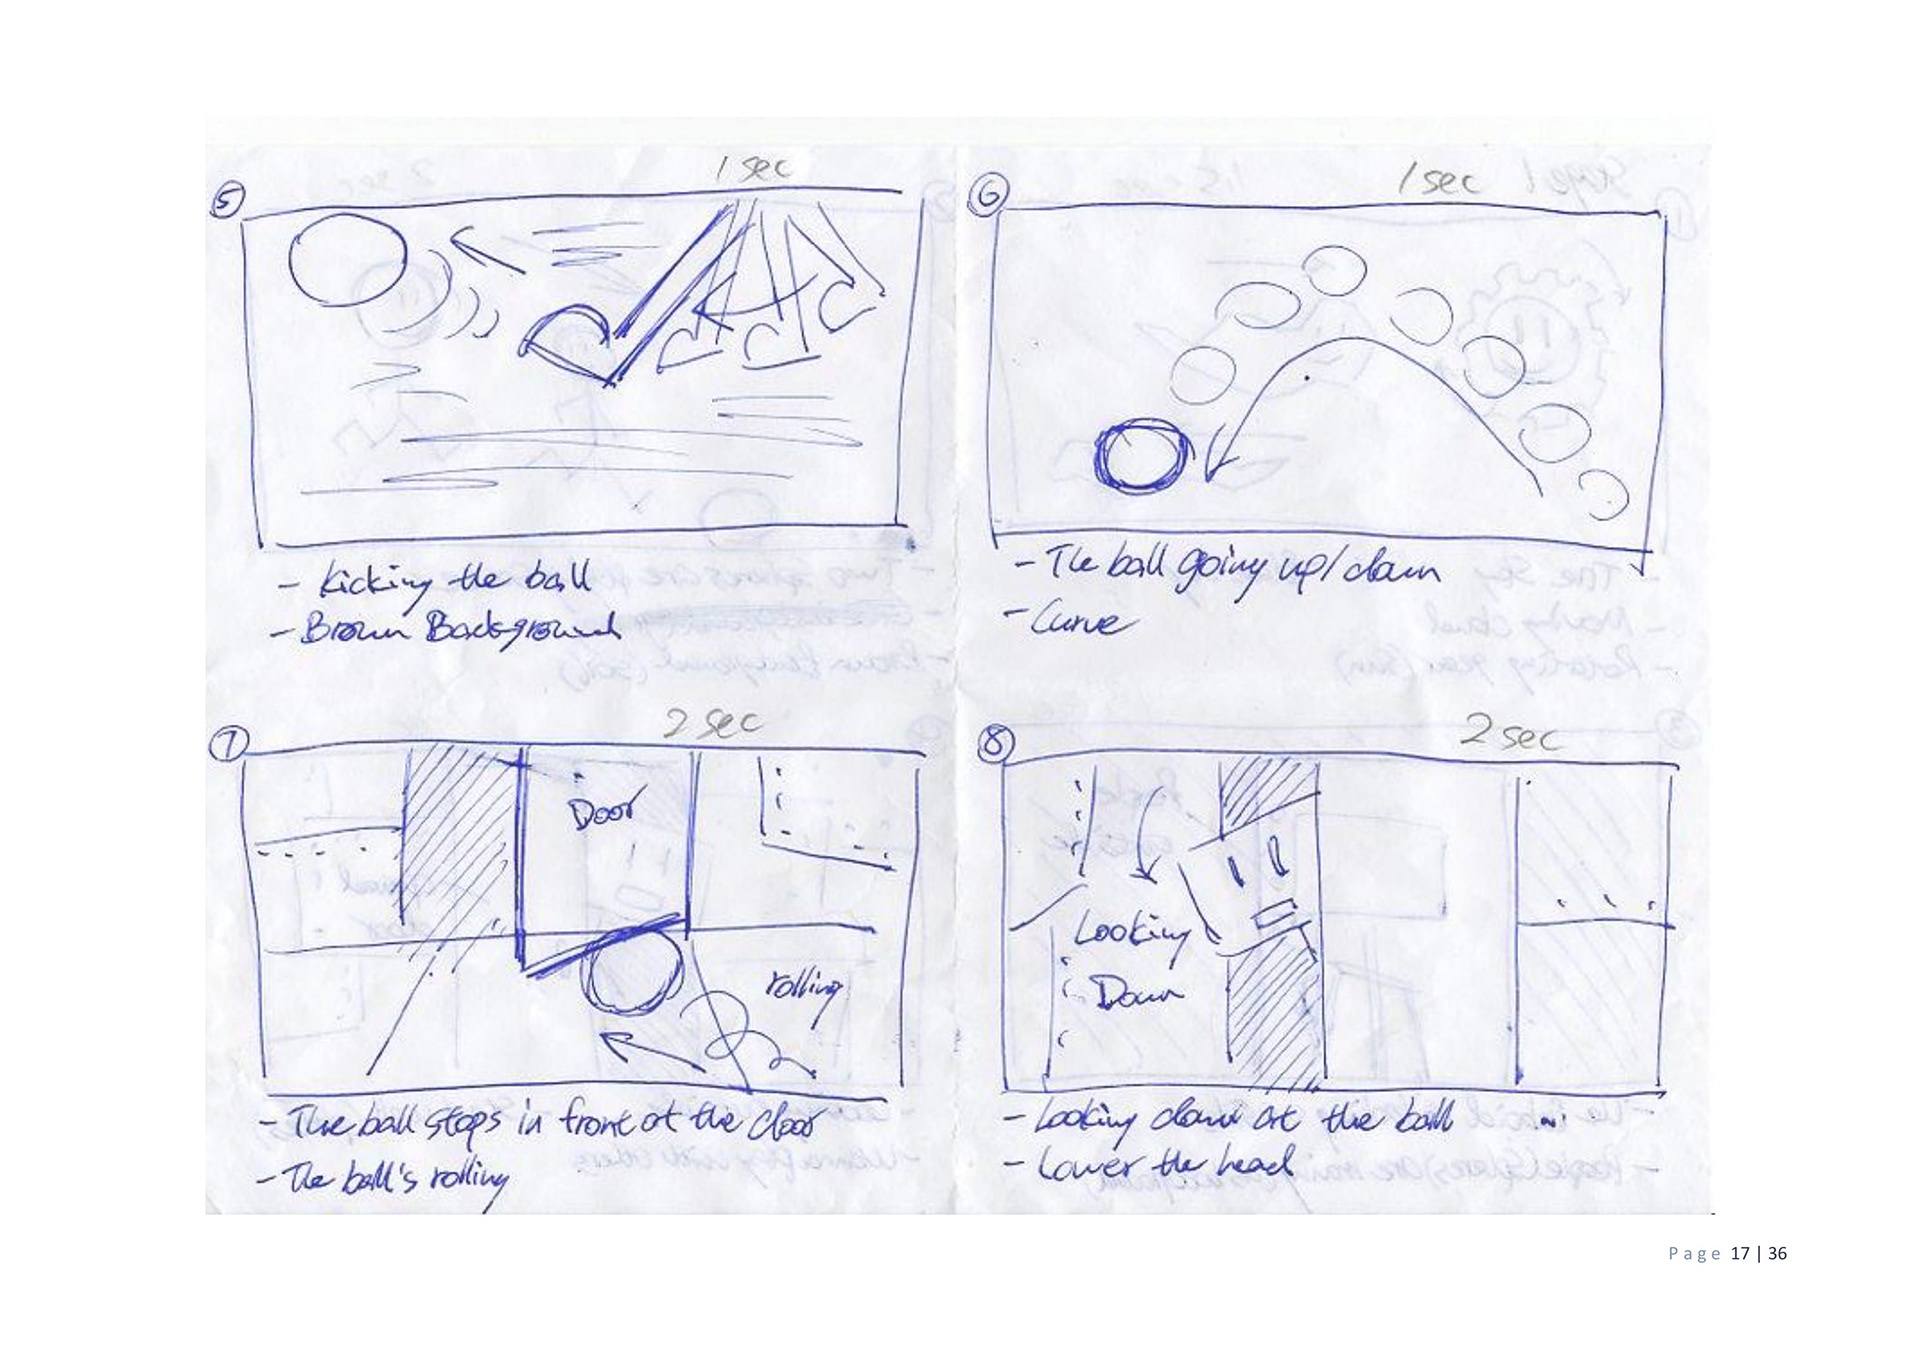 5
1 sec
- Kicking the ball
- Brown Background
6
1 sec
- The ball going up/down
- Curve
7
2 sec
Door
rolling
- The ball stops in front of the door
- The ball's rolling
8
2 sec
Looking
Down
- Looking down at the ball
- Lower the head
Page 17 | 36